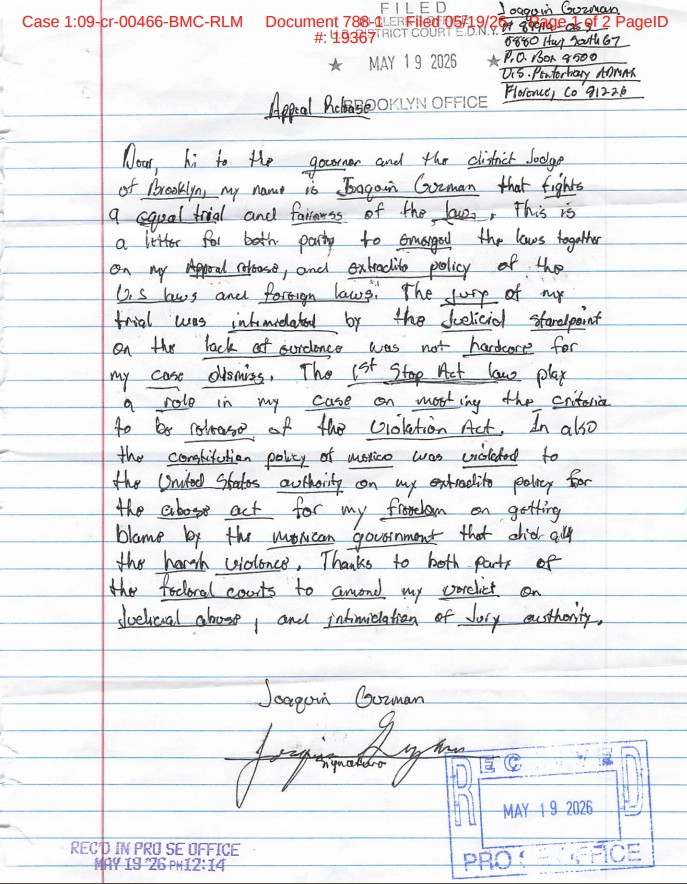 FILED
Case 1:09-cr-00466-BMC-RLM Document 788-1 Filed 05/19/26 Page 1 of 2 PageID
#: 19367
U.S. DISTRICT COURT E.D.N.Y.
★ MAY 19 2026 ★
BROOKLYN OFFICE
Joaquin Guzman
5880 Hwy South 67
P.O. Box 8500
U.S. Penitentiary ADMAX
Florence, Co 81226
Appeal Release
Dear, hi to the governor and the district Judge
of Brooklyn, my name is Joaquin Guzman that fights
a equal trial and fairness of the law. This is
a letter for both party to emerged the laws together
on my Appeal release, and extradito policy of the
U.S laws and foreign laws. The jury of my
trial was intimidated by the Judicial standpoint
on the lack of evidence was not hardcore for
my case dismiss. The 1st Step Act law play
a role in my case on meeting the criteria
to be release of the Violation Act. In also
the constitution policy of mexico was violated to
the United States authority on my extradito policy for
the abuse act for my freedom on getting
blame by the mexican government that did all
the harsh violence. Thanks to both party of
the federal courts to amend my verdict on
Judicial abuse, and intimidation of Jury authority.
Joaquin Guzman
Signature
RECEIVED
MAY 19 2026
PRO SE OFFICE
REC'D IN PRO SE OFFICE
MAY 19 '26 PM12:14